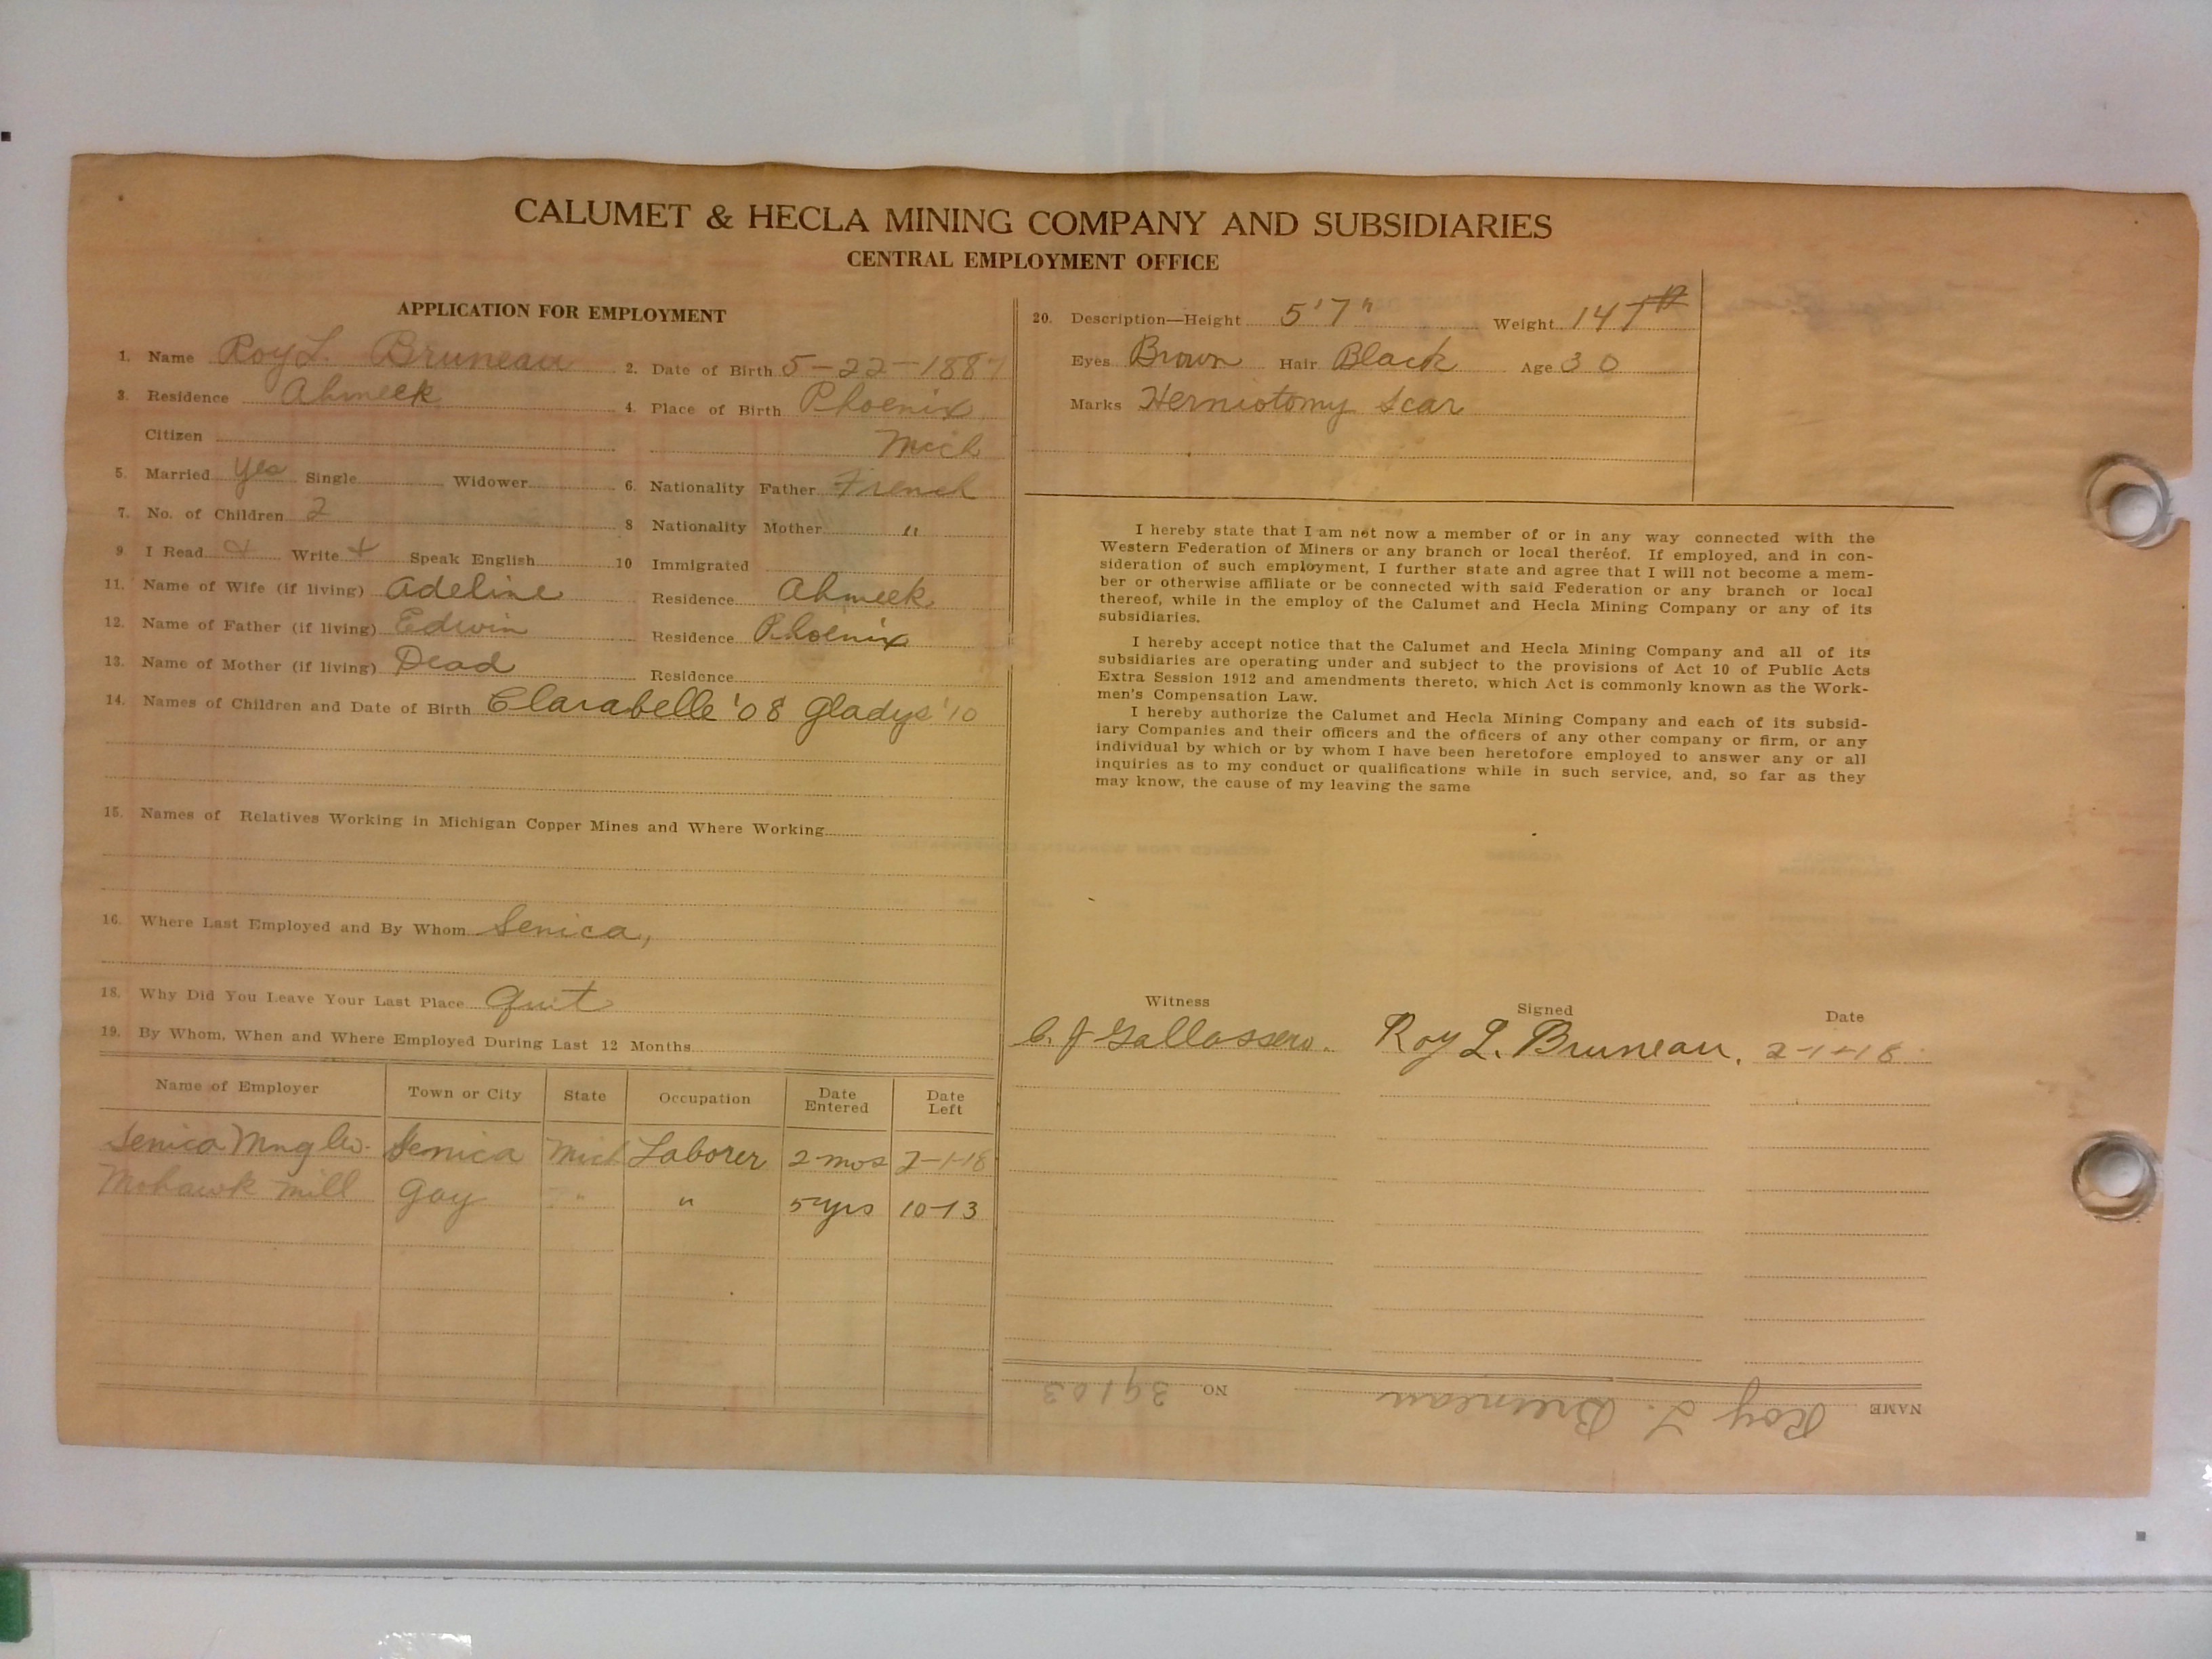 CALUMET & HECLA MINING COMPANY AND SUBSIDIARIES
CENTRAL EMPLOYMENT OFFICE
APPLICATION FOR EMPLOYMENT
1. Name Roy L. Bruneau 2. Date of Birth 5-22-1887
3. Residence Ahmeek 4. Place of Birth Phoenix
Citizen Mich
5. Married Yes Single Widower 6. Nationality Father French
7. No. of Children 2 8 Nationality Mother "
9. I Read Write Speak English 10 Immigrated
11. Name of Wife (if living) Adeline Residence Ahmeek
12. Name of Father (if living) Edwin Residence Phoenix
13. Name of Mother (if living) Dead Residence
14. Names of Children and Date of Birth Clarabelle '08 Gladys '10
15. Names of Relatives Working in Michigan Copper Mines and Where Working
16. Where Last Employed and By Whom Senica,
18. Why Did You Leave Your Last Place Quit
19. By Whom, When and Where Employed During Last 12 Months
Name of Employer Town or City State Occupation Date Entered Date Left
Senica Mng Co. Senica Mich Laborer 2 mos 2-1-18
Mohawk Mill Gay " " 5 yrs 10-13
20. Description—Height 5'7" Weight 147#
Eyes Brown Hair Black Age 30
Marks Herniotomy Scar
I hereby state that I am not now a member of or in any way connected with the
Western Federation of Miners or any branch or local thereof. If employed, and in con-
sideration of such employment, I further state and agree that I will not become a mem-
ber or otherwise affiliate or be connected with said Federation or any branch or local
thereof, while in the employ of the Calumet and Hecla Mining Company or any of its
subsidiaries.
I hereby accept notice that the Calumet and Hecla Mining Company and all of its
subsidiaries are operating under and subject to the provisions of Act 10 of Public Acts
Extra Session 1912 and amendments thereto, which Act is commonly known as the Work-
men's Compensation Law.
I hereby authorize the Calumet and Hecla Mining Company and each of its subsid-
iary Companies and their officers and the officers of any other company or firm, or any
individual by which or by whom I have been heretofore employed to answer any or all
inquiries as to my conduct or qualifications while in such service, and, so far as they
may know, the cause of my leaving the same
Witness Signed Date
C. J. Gallossero. Roy L. Bruneau. 2-1-18
NAME Roy L. Bruneau NO 39103